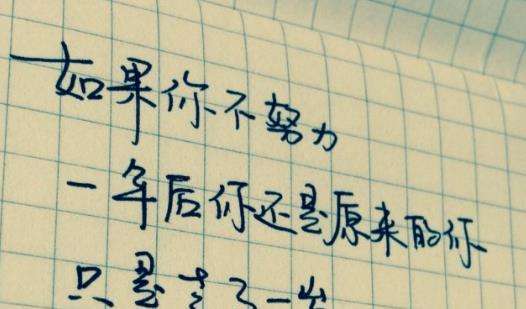 如果你不努力
一年后你还是原来的你
只是老了一岁